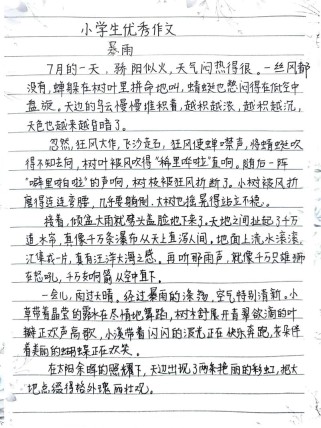 小学生优秀作文
暴雨
7月的一天，骄阳似火，天气闷热得很。一丝风都
没有，蝉躲在树叶里拼命地叫，蜻蜓也憋闷得在低空中
盘旋。天边的乌云慢慢堆积着，越积越浓，越积越沉，
天色也越来越昏暗了。
忽然，狂风大作，飞沙走石，狂风使蝉噤声，将蜻蜓吹
得不知去向，树叶被风吹得“稀里哗啦”直响。随后一阵
“噼里啪啦”的声响，树枝被狂风折断了。小树被风折
磨得连连弯腰，几乎要躺倒，大树也摇晃得站立不稳。
接着，倾盆大雨就劈头盖脸地下来了。天地之间扯起了千万
道水帘，真像千万条瀑布从天上直泻人间。地面上流水滚滚，
汇集成一片，真有汪洋大海之感。再听那雨声，就像千只雄狮
在怒吼，千万支响箭从空中直下。
一会儿，雨过天晴。经过暴雨的涤荡，空气特别清新。小
草带着晶莹的露水在尽情地舞蹈，树木舒展开青翠欲滴的叶
瓣正欢声高歌，小溪带着闪闪的波光正在快乐奔跑，花朵伴
着美丽的蝴蝶正在欢笑。
在太阳余晖的照耀下，天边出现了两条艳丽的彩虹，把大
地点缀得格外瑰丽壮观。